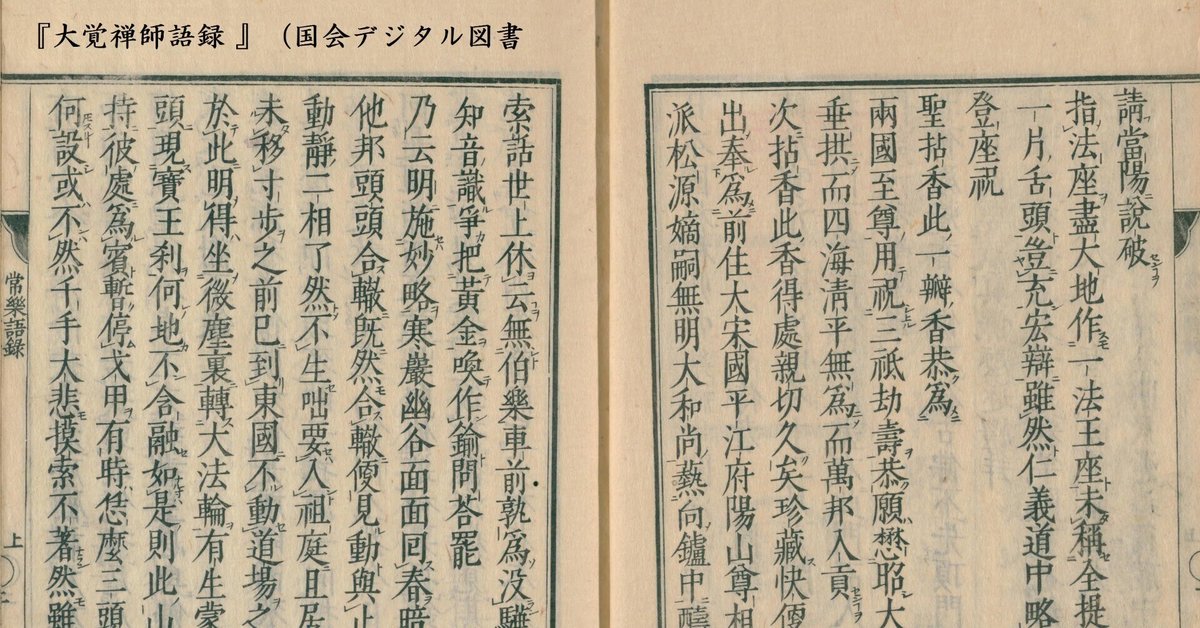 『大覚禅師語録 』 (国会デジタル図書
請當陽說破
指法座盡大地作一法王座未稱全提
一片舌頭豈充宏辯雖然仁義道中略
登座祝
聖拈香此一瓣香恭爲
兩國至尊用祝三祇劫壽恭願懋昭大
垂拱而四海淸平無爲而萬邦入貢
次拈香此香得處親切久矣珍藏快便
出奉爲前住大宋國平江府陽山尊相
派松源嫡嗣無明大和尚爇向鑪中
索話世上休云無伯樂車前孰爲沒驊
知音識爭把黃金喚作鍮問荅罷
乃云明施妙略寒巖幽谷面面回春暗
他邦頭頭合轍旣然合轍便見動與止
動靜二相了然不生咄要入祖庭且居
未移寸步之前已到東國不動道場之
於此明得坐微塵裏轉大法輪有生蒙
頭現寶王刹何地不合融如是則此山
持彼處爲賓暫停戈甲有時恁麽三頭
何設或不然千手大悲摸索不著然雖
常樂語錄
上